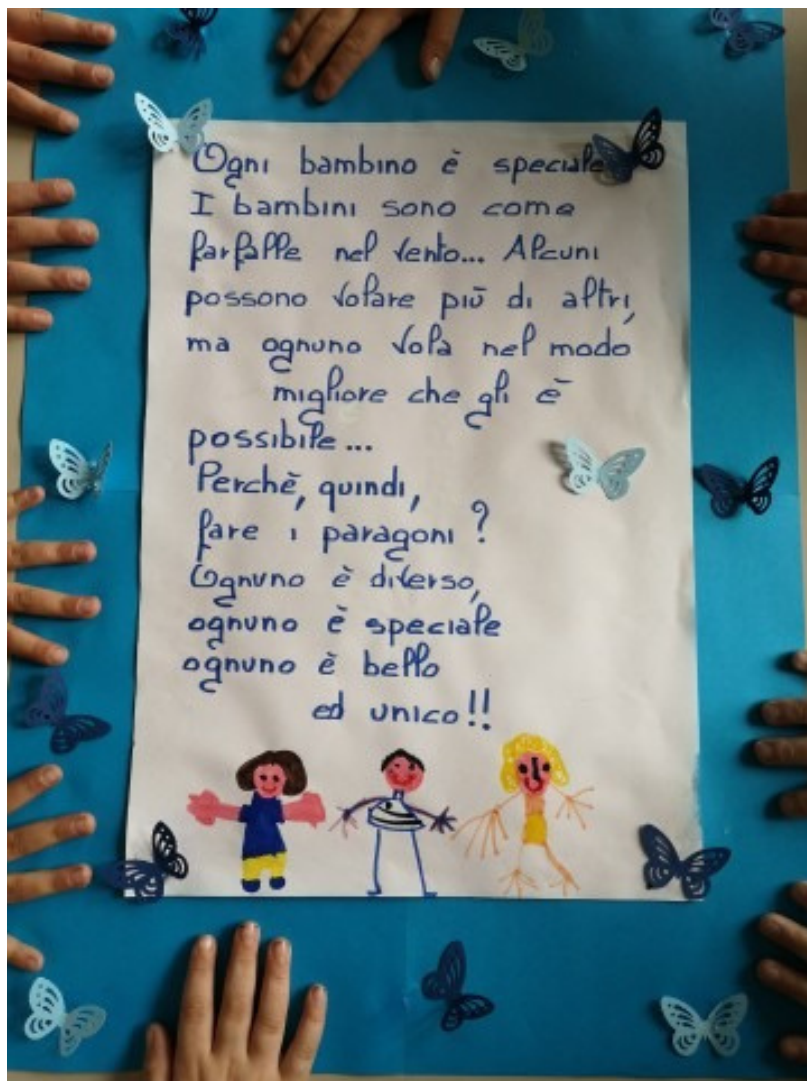 Ogni bambino è speciale
I bambini sono come
farfalle nel vento... Alcuni
possono volare più di altri,
ma ognuno vola nel modo
migliore che gli è
possibile...
Perchè, quindi,
fare i paragoni?
Ognuno è diverso,
ognuno è speciale
ognuno è bello
ed unico!!